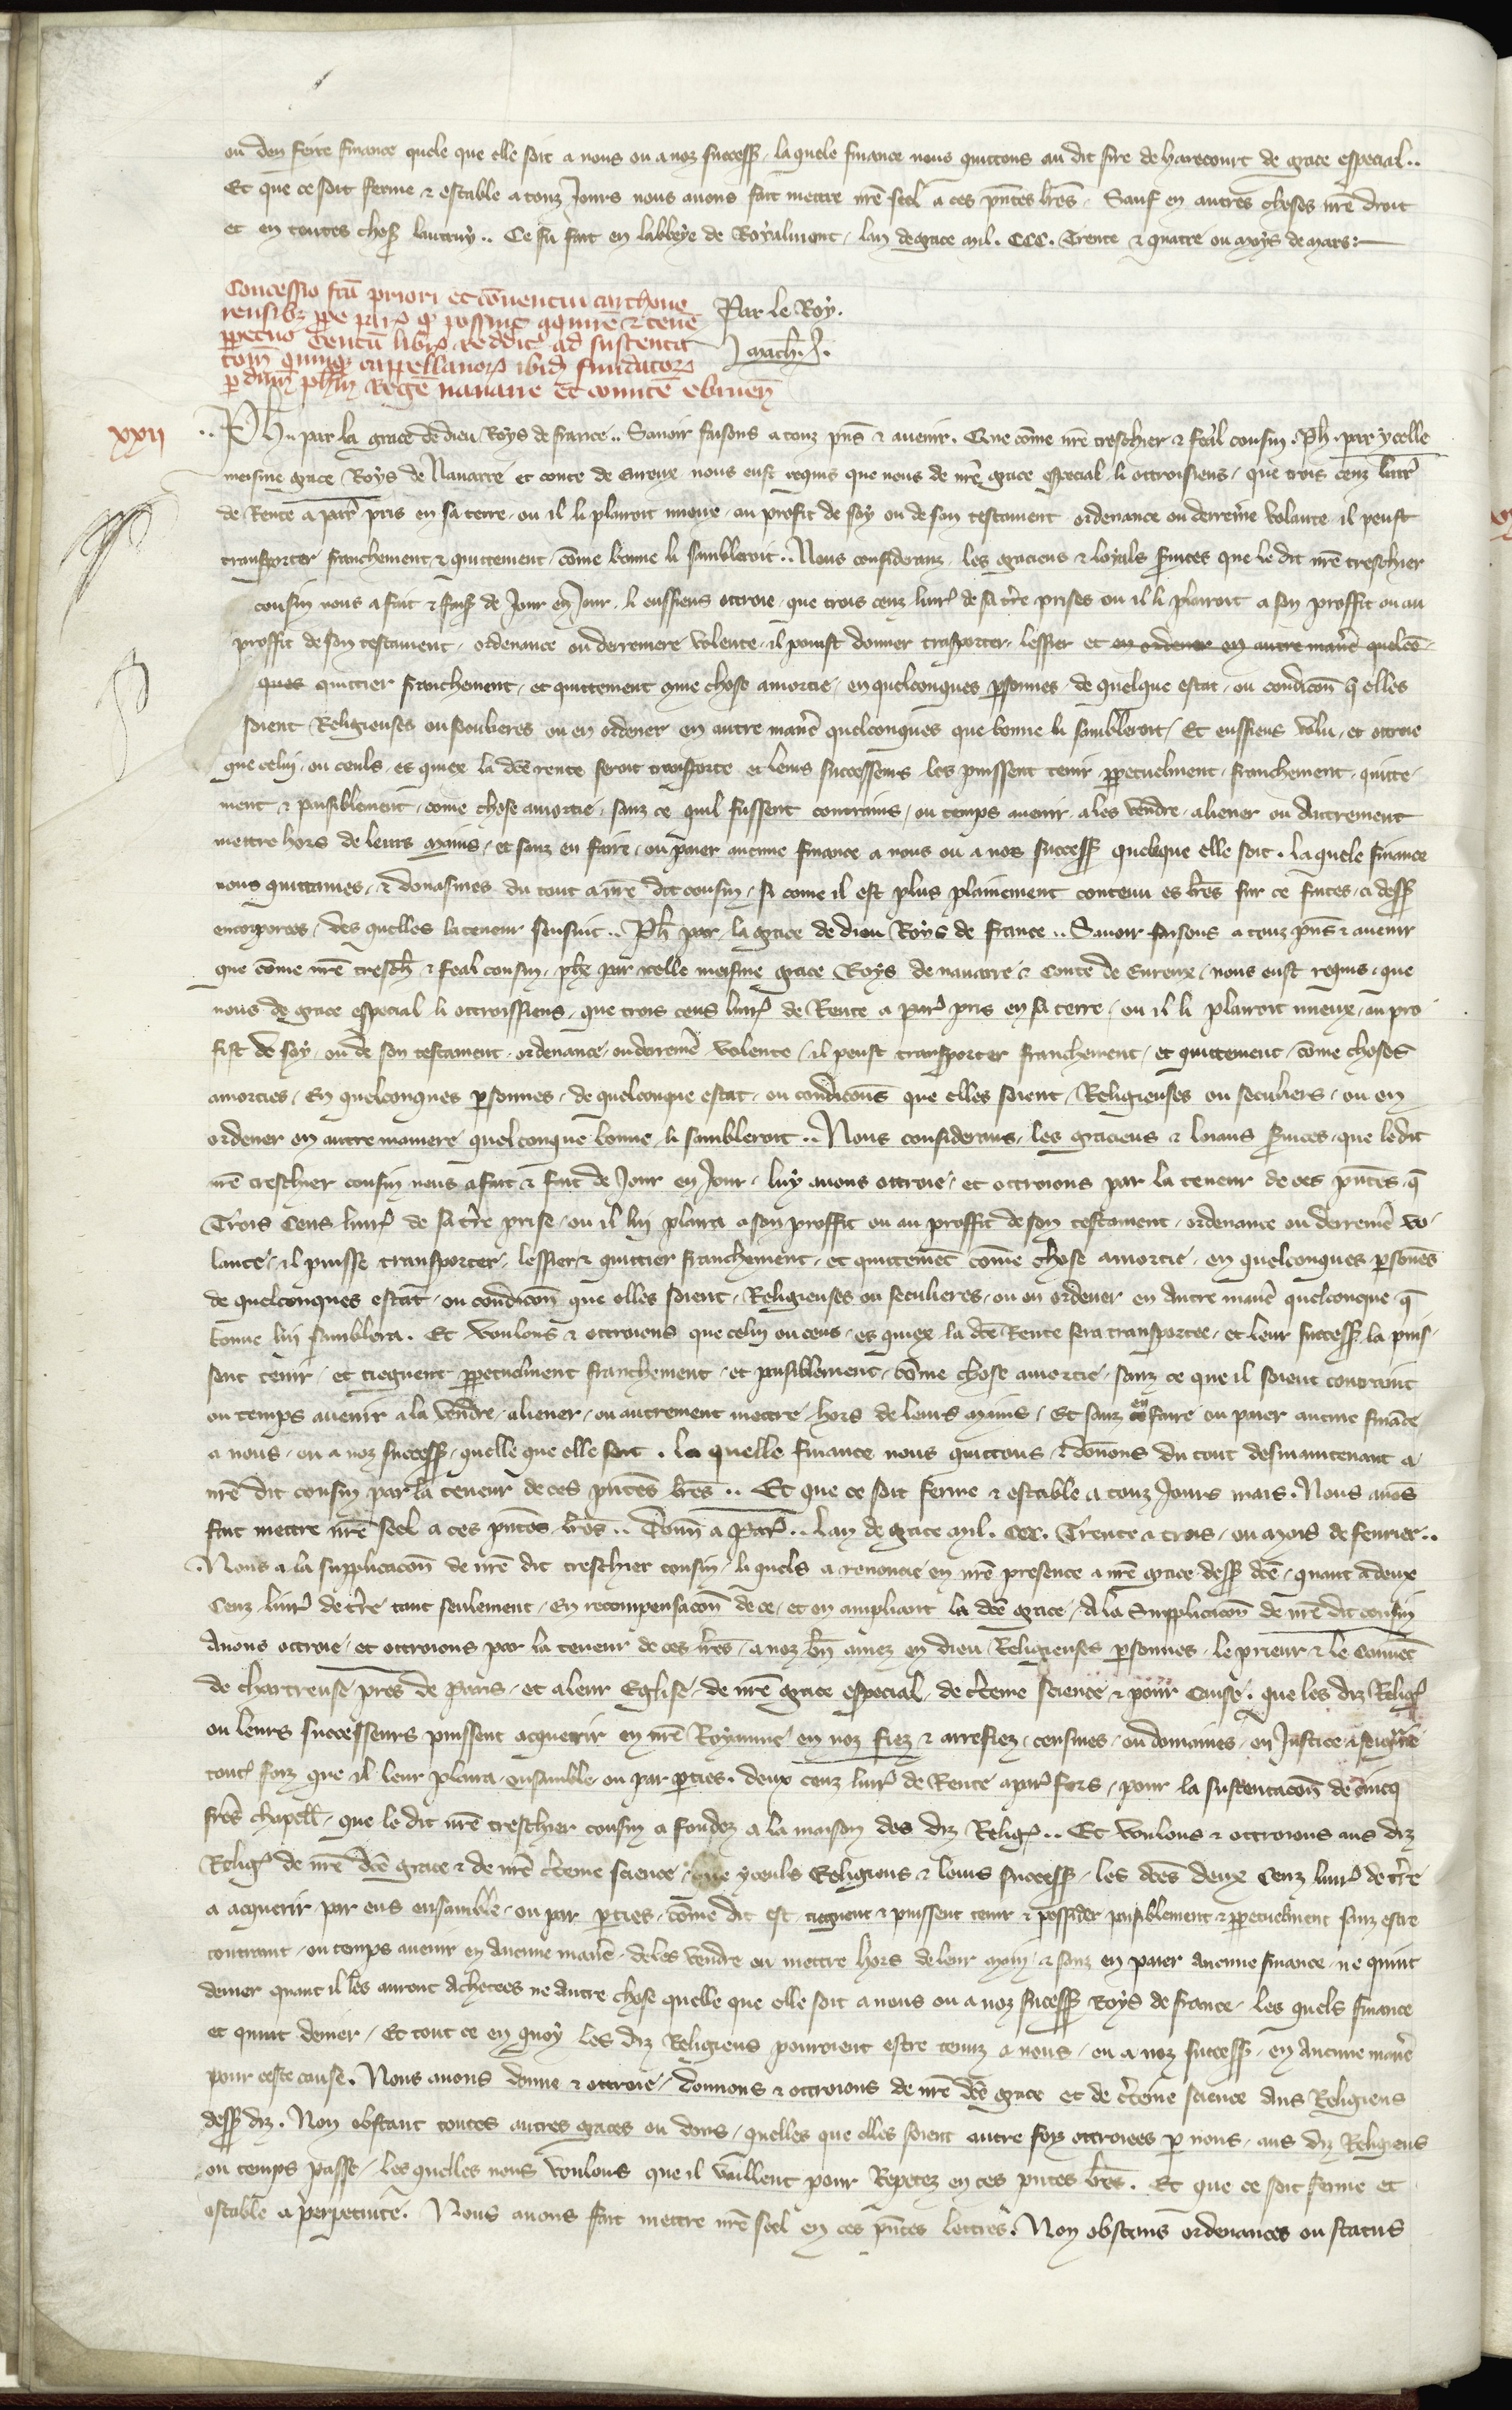 ou den feire finance quele que elle soit a nous ou a noz success. laquele finance nous quittons au dit sire de harecourt de grace especial..
Et que ce soit ferme & estable a touz Jours nous avons fait mettre nr̃e seel a ces pñtes lr̃es. Sauf en autres choses nr̃e droit
et en toutes choses lautruy.. Ce fu fait en labbeye de Royalmont, lan de grace mil. CCC. Trente & quatre ou moys de mars:
Concessio fcã priori et cõventui carthous
Par le Roy.
perpetuo Centũ libr̃ reddit ad sustenta
tõm quinq, cappellanor ibid fundator
p dñm ph̃m Regẽ navarre et comitẽ ebroiceñ
xxii
.. Ph.. par la grace de dieu Roys de france.. Savoir faisons a touz pñs & avenir. Que cõme nr̃e treschier & feal cousin. Ph. par ycelle
meisme grace Roys de Navarre et conte de Evreux nous eust requis que nous de nr̃e grace especial li ottroisiens, que trois cenz livr̃
de Rente a par̃ pris en sa terre, ou il li plairoit mieux, au profit de soy ou de son testament ordenance ou derreine volante il peust
transporter franchement & quittement, cõme bonne li sambleroit.. Nous considerans les gracieus & loyals services que le dit nr̃e treschier
cousin nous a fait & fait de Jour en Jour, li eussiens ottroie, que trois cenz livr̃ de sa tr̃re prises ou il li plairoit a son proffit ou au
proffit de son testament, ordenance ou derreniere volente, il pouist donner trãsporter, lessier et en ordener en autre manr̃e quelcõ-
ques quittier franchement, et quittement cõme chose amortie, en quelconques psonnes, de quelque estat, ou condicõn q̃ elles
soient Religieuses ou seculieres ou en ordener en autre manr̃e quelconques que bonne li sambleroit, Et eussiens volu, et ottroie
que celui, ou ceuls, es quiex la dc̃e rente seroit transporte et leurs successeurs les puissent tenir ppetuelment, franchement, quitte-
ment & paisiblement, come chose amortie, sanz ce quil fussent contrains, ou temps avenir a les vendre, aliener ou autrement
mettre hors de leurs mains, et sanz en faire, ou paier aucune finance a nous ou a nos success. quelque elle soit. laquele finance
nous quittames, & donasmes du tout a nr̃e dit cousin, si come il est plus plainement contenu es lr̃es sur ce faites, ci dess.
encorporees, des quelles la teneur sensuit.. Ph par la grace de dieu Roys de france.. Savoir faisons a touz pñs & avenir
que cõme nr̃e tresch. & feal cousin, phe par icelle meisme grace Roys de navarre & Conte de Evreux, nous eust requis, que
nous de grace especial li ottroissiens, que trois cens livr̃ de Rente a par̃ pris en sa terre, ou il li plairoit mieux, au pro
fist de soy, ou de son testament, ordenance, ou derreinẽ volente, il peust transporter franchement, et quittement, cõme choses
amorties, En quelconques psonnes, de quelconque estat, ou condicõns que elles soient, Religieuses ou seculiers, ou en
ordener en autre maniere quelconque bonne li sambleroit.. Nous considerans, les gracieus & loiaus services, que le dit
nr̃e treschier cousin nous a fait & fait de Jour en Jour, luy avons ottroie, et ottroions par la teneur de ces pñtes, q̃
Trois Cens livr̃ de sa tr̃re prise, ou il lui plaira a son proffit ou au proffit de son testament, ordenance ou derreinẽ vo-
lante, il puisse transporter, lessier & quittier franchement, et quittemẽt cõme chose amortie, en quelconques psonẽs
de quelconques estat, ou condicõn que elles soient, Religieuses ou seculieres, ou en ordener en autre manr̃e quelconque, q̃
bonne lui samblera. Et voulons & ottroiens que celui ou ceus, es quiex la dc̃e Rente sera transportee, et leur success. la puis-
sent tenir, et tiegnent ppetuelment franchement, et paisiblement, cõme chose amortie, sanz ce que il soient contraint
ou temps avenir a la vendre, aliener, ou autrement mettre hors de leurs mains, Et sanz en faire ou paier aucune finãce
a nous, ou a noz success. quelle que elle soit. la quelle finance nous quittons, & donnons du tout desmaintenant a
nr̃e dit cousin par la teneur de ces pñtes lr̃es.. Et que ce soit ferme & estable a touz Jours mais. Nous avõs
fait mettre nr̃e seel a ces pñtes lr̃es.. Donñ a Par̃.. lan de grace mil. CCC. Trente & trois, ou mois de fevrier..
Nous a la supplicacõn de nr̃e dit treschier cousin, li quels a renoncie en nr̃e presence a nr̃e grace dess. dc̃e, quant a deux
Cenz livr̃ de tr̃re tant seulement, En recompensacõn de ce, et en ampliant la dc̃e grace, A la Supplicacõn de nr̃e dit cousin
Avons ottroie, et ottroions par la teneur de ces lr̃es, a noz bñ amez en dieu Religieuses psonnes, le prieur & le Convẽt
de chartreuse pres de Paris, et a leur Eglise, de nr̃e grace especial, de cr̃teine science, & pour Cause. que les diz Relig̃
ou leurs successeurs puissent acquerir en nr̃e Royaume en noz fiez & arrefiez, censives, ou domaines, en Justice & seignr̃ie
toutes foiz que il leur plaira, ensamble, ou par pties, deux cenz livr̃ de Rente a par̃ fors, pour la sustentacõn de cincq
frẽs chapell. que le dit nr̃e treschier cousin a fondez a la maison des diz Relig̃.. Et voulons & ottroions aus diz
Relig̃ de nr̃e dc̃e grace & de nr̃e cr̃teine science, que yceuls Religieus & leurs success. les dc̃es deux Cenz livr̃ de tr̃re
a acquerir par eus ensamble, ou par pties, cõme dit est, tiegnent & puissent tenir & possider paisiblement & ppetuelment sanz estre
contraint, ou temps avenir en aucune manr̃e, de les vendre ou mettre hors de leur main, & sanz en paier aucune finance, ne quint
denier quant il les auront achetees ne autre chose quelle que elle soit a nous ou a noz success. Roys de france, les quels finance
et quint denier, Et tout ce en quoy les diz Religieus pourroient estre tenuz a nous, ou a noz success. en aucune manr̃e
pour ceste cause. Nous avons donne & ottroie, donnons & ottroions de nr̃e dc̃e grace et de cr̃teine science aus Religieus
dess. diz. Non obstant toutes autres graces ou dons, quelles que elles soient autre foiz ottroiees p nous, aus diz Religieus
ou temps passe, les quelles nous voulons que il vaillent pour Repetez en ces pñtes lr̃es. Et que ce soit ferme et
estable a perpetuite. Nous avons fait mettre nr̃e seel en ces pñtes lettres. Non obstans ordenances ou status